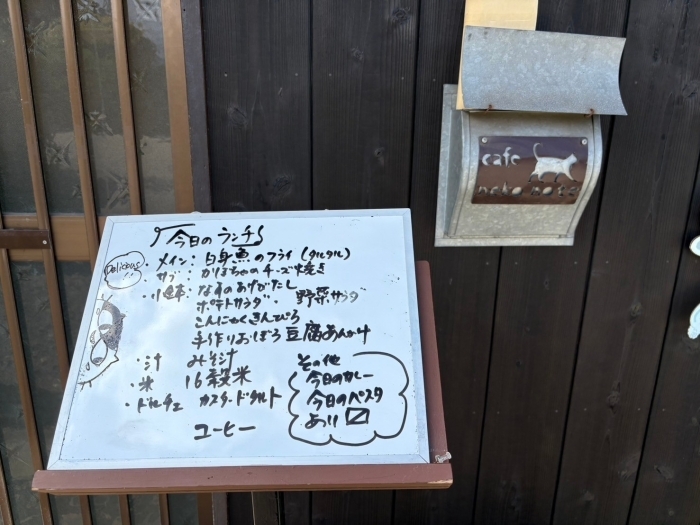 cafe
neko note
今日のランチ
Delicious!!
・メイン: 白身魚のフライ (タルタル)
・サブ: かぼちゃのチーズ焼き
・小鉢: なすのあげびたし
ポテトサラダ、野菜サラダ
こんにゃくきんぴら
手作りおぼろ豆腐あんかけ
・汁 みそ汁
・米 16穀米
・ドルチェ カスタードタルト
コーヒー
その他
今日のカレー
今日のパスタ
あり